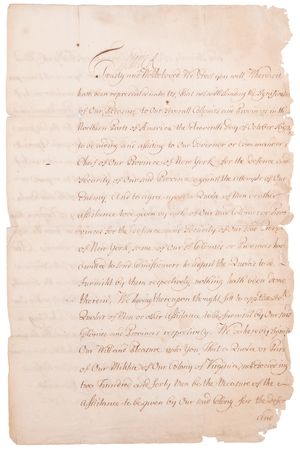 Trusty and Welbeloved We Greet you well Whereas it
hath been represented unto Us that notwithstanding the
of Our to Our severall Colonies and Provinces in the
Northern Parts of America the Eleventh day of October
to be aiding and assisting to Our Governor or Commander in
Cheif of Our Province of New York for the defence and
Security of Our said Province against the Attempts of Our
Enemy, And to agree upon a Quota of Men or other
Assistance to be given by each of Our said Colonies or Pro
vinces for the defence and Security of Our said Province
of New York, some of Our Colonies or Provinces have
omitted to send Commissioners to adjust the Quota's to be
furnisht by them respectively, nothing hath been done
therein, We having thereupon thought fitt to appoint a
Quota of Men or other Assistance to be furnisht by Our
Colonies and Provinces respectively, We do hereby signify
Our Will and Pleasure unto You, That a Quota or Part
of Our Militia of Our Colony of Virginia, not exceeding
two Hundred and forty Men be the Measure of the
Assistance to be given by Our said Colony for the defence
and